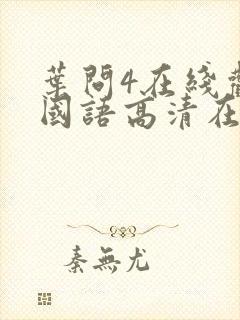 葉問4在綫
國語高清在
秦無尤